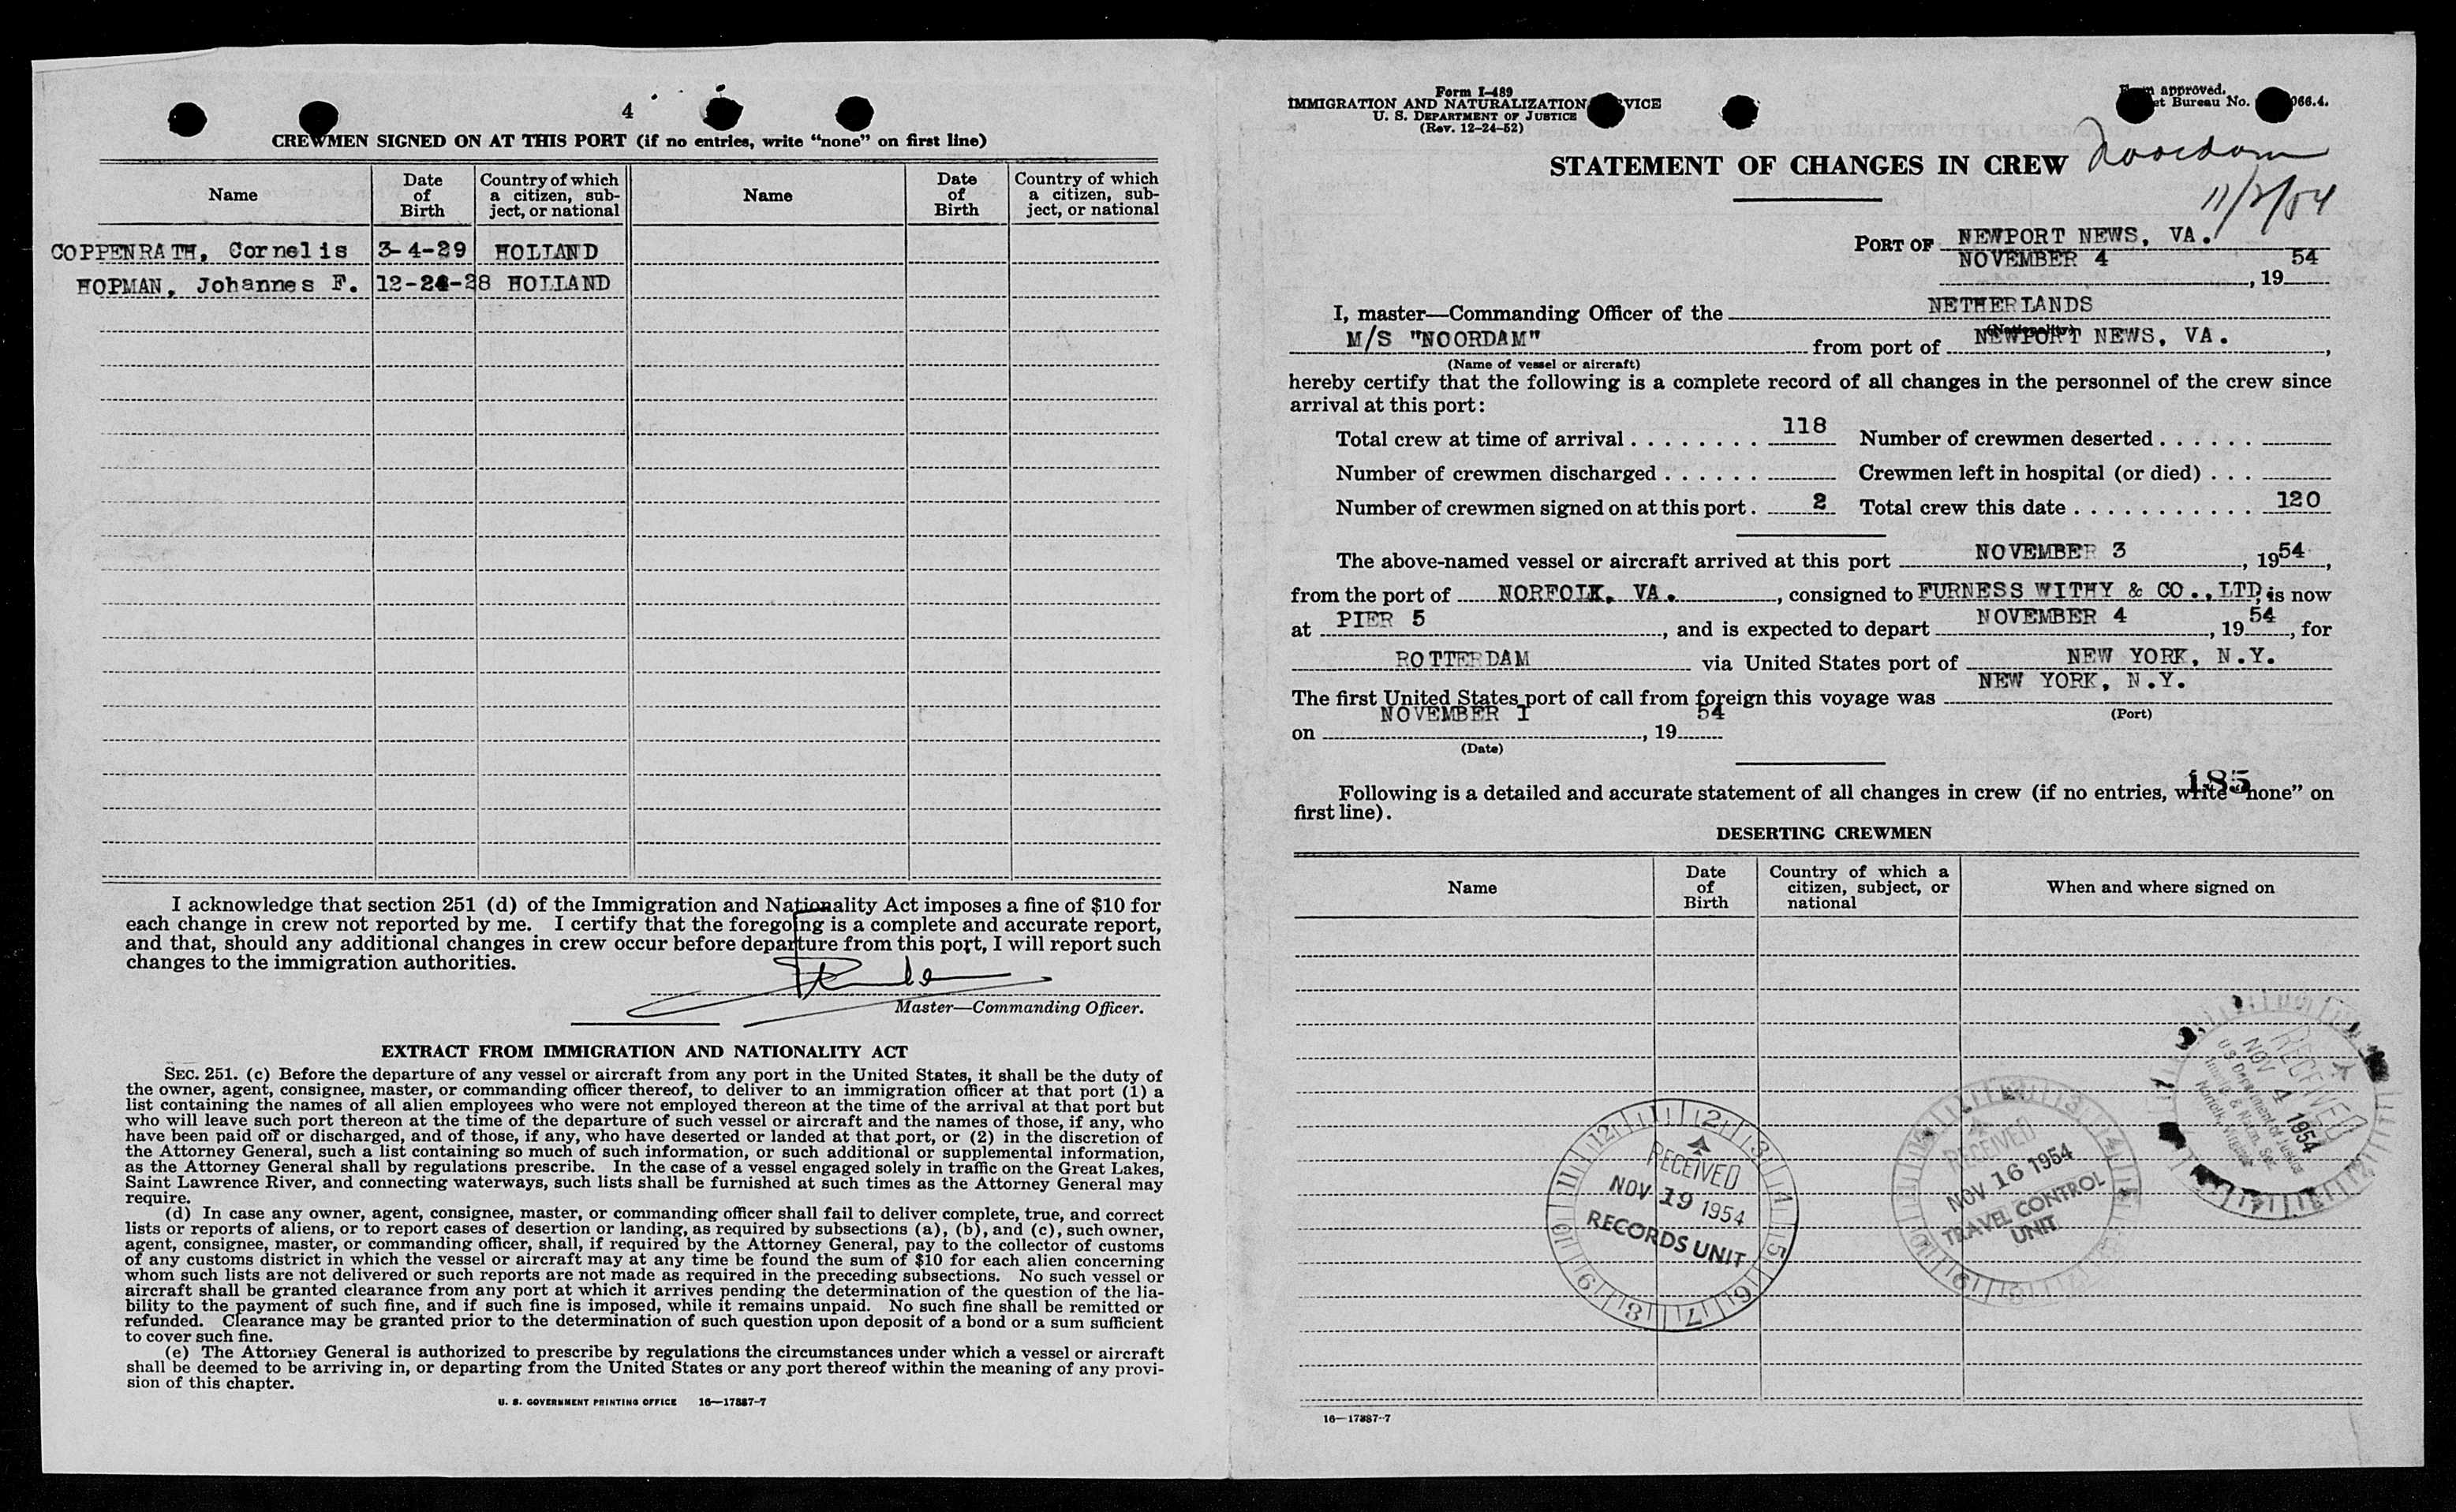 4
CREWMEN SIGNED ON AT THIS PORT (if no entries, write "none" on first line)
Name
Date of Birth
Country of which a citizen, subject, or national
Name
Date of Birth
Country of which a citizen, subject, or national
COPPENRATH, Cornelis 3-4-29 HOLLAND
HOPMAN, Johannes F. 12-24-28 HOLLAND
I acknowledge that section 251 (d) of the Immigration and Nationality Act imposes a fine of $10 for
each change in crew not reported by me. I certify that the foregoing is a complete and accurate report,
and that, should any additional changes in crew occur before departure from this port, I will report such
changes to the immigration authorities.
Master—Commanding Officer.
EXTRACT FROM IMMIGRATION AND NATIONALITY ACT
SEC. 251. (c) Before the departure of any vessel or aircraft from any port in the United States, it shall be the duty of
the owner, agent, consignee, master, or commanding officer thereof, to deliver to an immigration officer at that port (1) a
list containing the names of all alien employees who were not employed thereon at the time of the arrival at that port but
who will leave such port thereon at the time of the departure of such vessel or aircraft and the names of those, if any, who
have been paid off or discharged, and of those, if any, who have deserted or landed at that port, or (2) in the discretion of
the Attorney General, such a list containing so much of such information, or such additional or supplemental information,
as the Attorney General shall by regulations prescribe. In the case of a vessel engaged solely in traffic on the Great Lakes,
Saint Lawrence River, and connecting waterways, such lists shall be furnished at such times as the Attorney General may
require.
(d) In case any owner, agent, consignee, master, or commanding officer shall fail to deliver complete, true, and correct
lists or reports of aliens, or to report cases of desertion or landing, as required by subsections (a), (b), and (c), such owner,
agent, consignee, master, or commanding officer, shall, if required by the Attorney General, pay to the collector of customs
of any customs district in which the vessel or aircraft may at any time be found the sum of $10 for each alien concerning
whom such lists are not delivered or such reports are not made as required in the preceding subsections. No such vessel or
aircraft shall be granted clearance from any port at which it arrives pending the determination of the question of the lia-
bility to the payment of such fine, and if such fine is imposed, while it remains unpaid. No such fine shall be remitted or
refunded. Clearance may be granted prior to the determination of such question upon deposit of a bond or a sum sufficient
to cover such fine.
(e) The Attorney General is authorized to prescribe by regulations the circumstances under which a vessel or aircraft
shall be deemed to be arriving in, or departing from the United States or any port thereof within the meaning of any provi-
sion of this chapter.
U. S. GOVERNMENT PRINTING OFFICE 16—17887-7
Form I-489
IMMIGRATION AND NATURALIZATION VICE
U. S. DEPARTMENT OF JUSTICE
(Rev. 12-24-52)
approved.
Bureau No. 066.4.
STATEMENT OF CHANGES IN CREW
Noordam
PORT OF NEWPORT NEWS, VA.
NOVEMBER 4, 1954
I, master—Commanding Officer of the NETHERLANDS
(Nationality)
M/S "NOORDAM" from port of NEWPORT NEWS, VA.,
(Name of vessel or aircraft)
hereby certify that the following is a complete record of all changes in the personnel of the crew since
arrival at this port:
Total crew at time of arrival 118 Number of crewmen deserted
Number of crewmen discharged Crewmen left in hospital (or died)
Number of crewmen signed on at this port. 2 Total crew this date 120
The above-named vessel or aircraft arrived at this port NOVEMBER 3, 1954,
from the port of NORFOLK, VA., consigned to FURNESS WITHY & CO., LTD, is now
at PIER 5, and is expected to depart NOVEMBER 4, 1954, for
ROTTERDAM via United States port of NEW YORK, N.Y.
The first United States port of call from foreign this voyage was NEW YORK, N.Y.
(Port)
on NOVEMBER 1, 1954
(Date)
185
Following is a detailed and accurate statement of all changes in crew (if no entries, write "none" on
first line).
DESERTING CREWMEN
Name
Date of Birth
Country of which a citizen, subject, or national
When and where signed on
RECEIVED
NOV 4 1954
U.S. Department of Justice
Immig. & Natzn. Ser.
Norfolk, Virginia
RECEIVED
NOV 16 1954
TRAVEL CONTROL
UNIT
RECEIVED
NOV 19 1954
RECORDS UNIT
16—17887-7